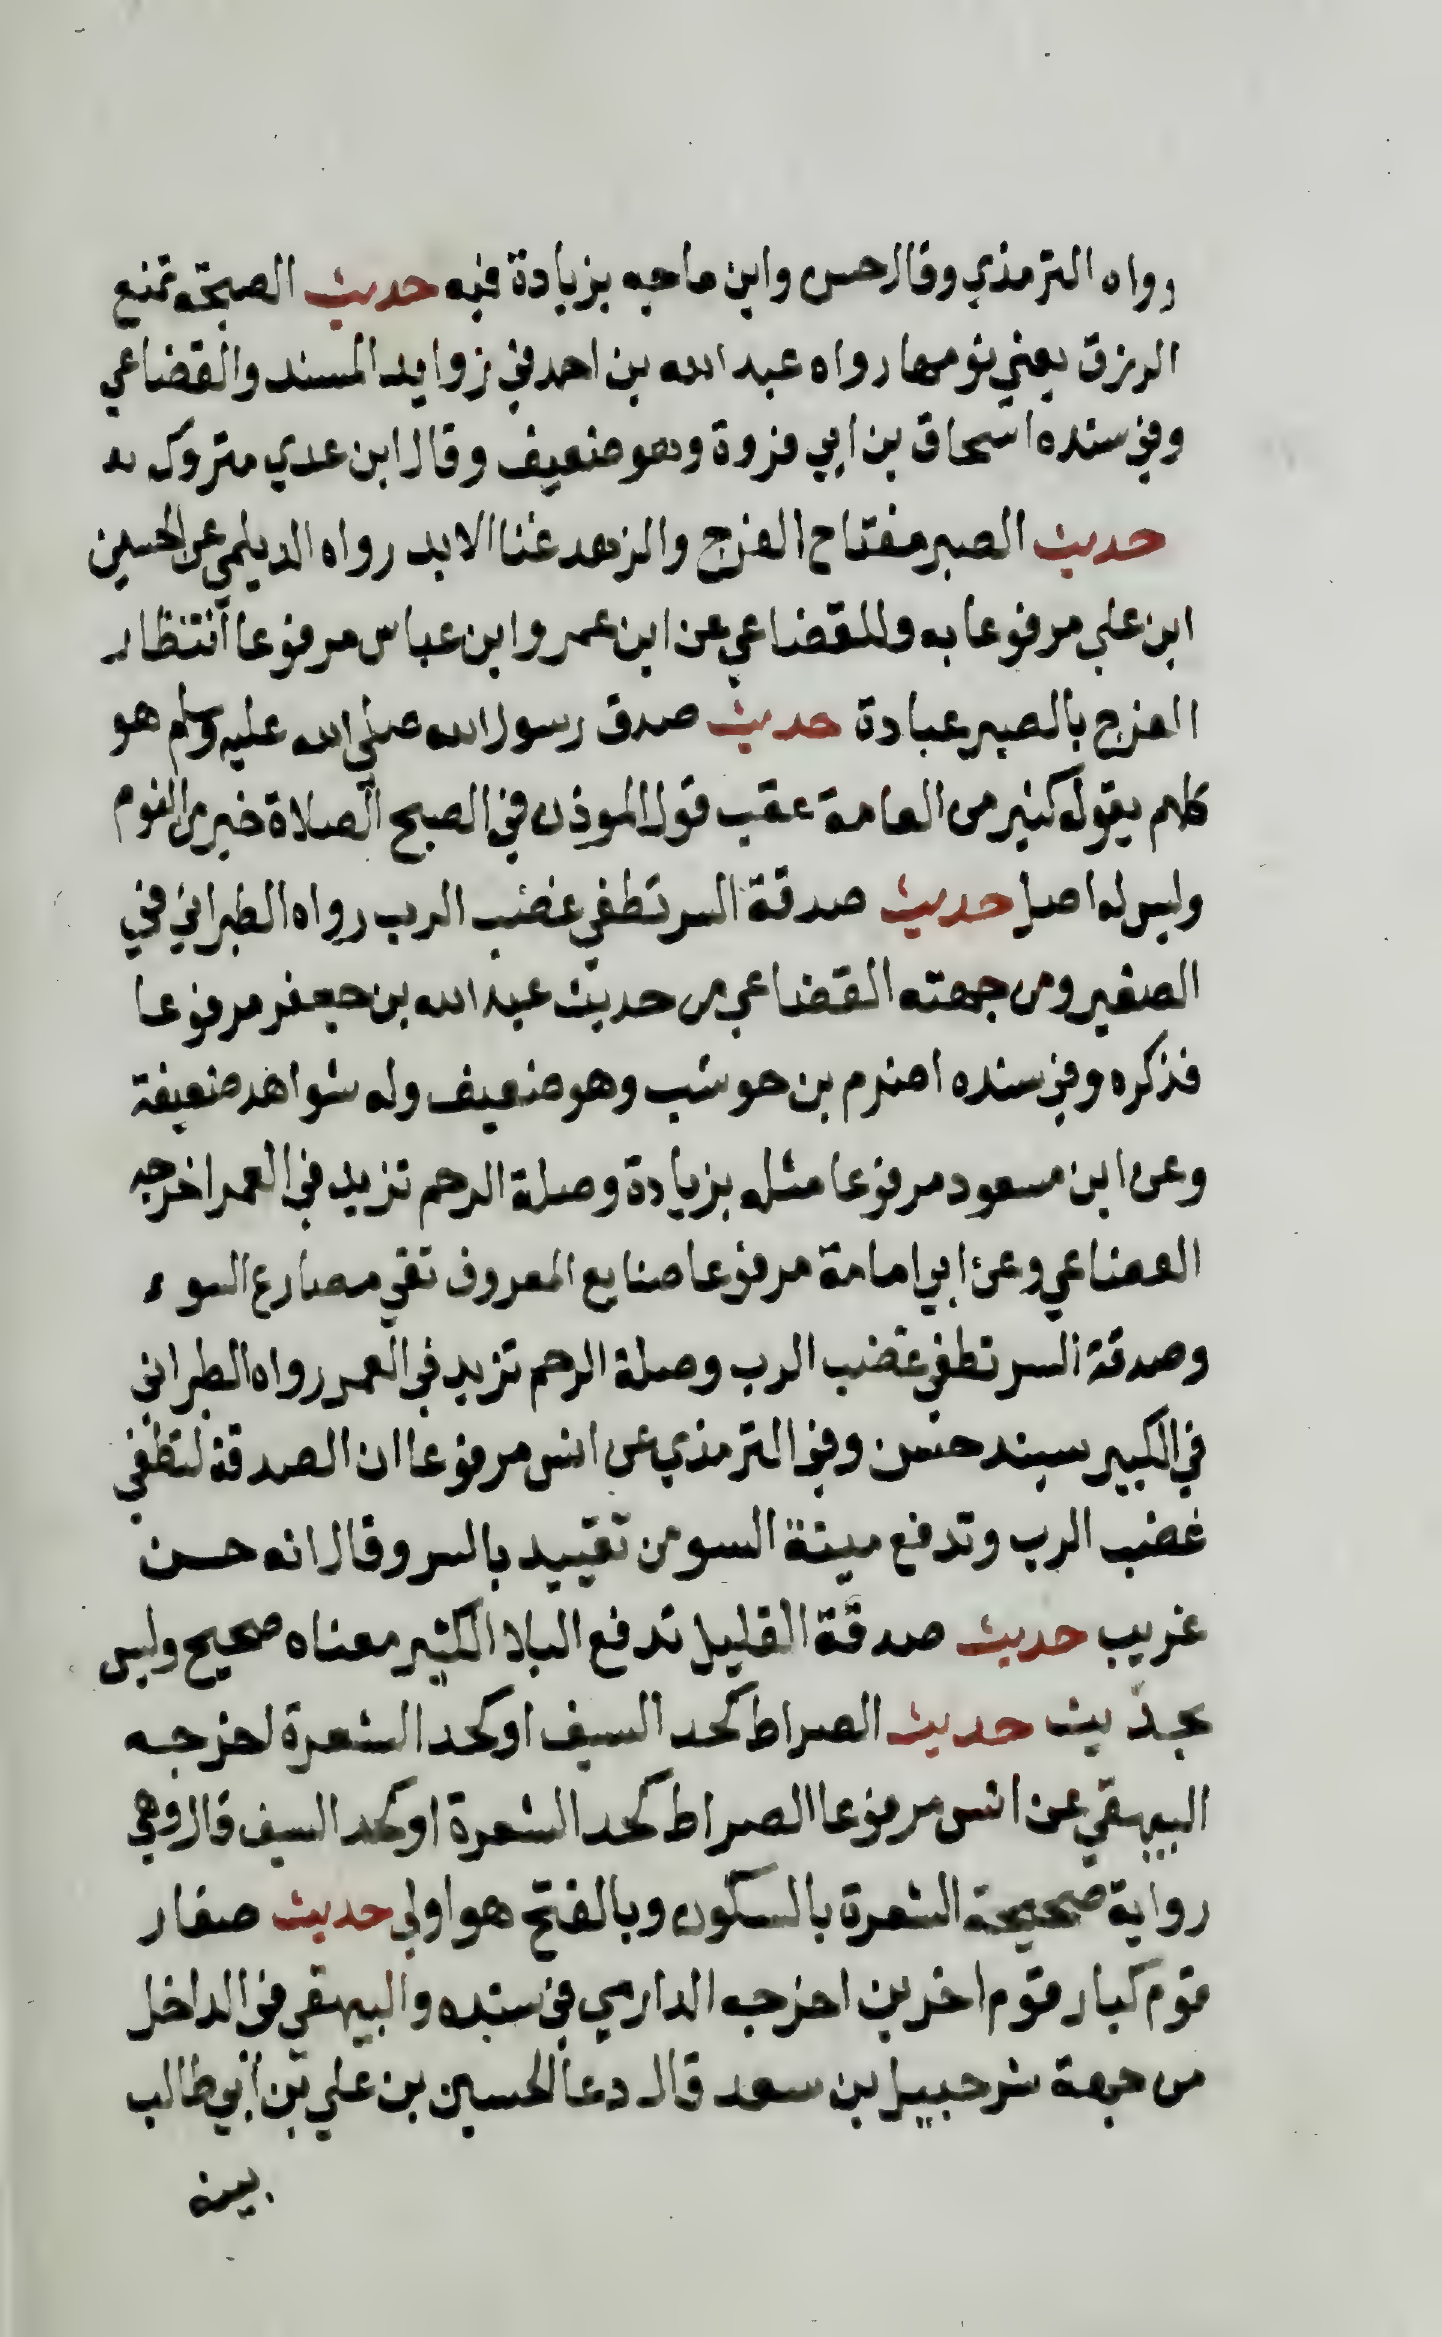 رواه الترمذي وقال حسن وابن ماجه بزيادة فيه حديث الصبحة تمنع
الرزق يعني نومها رواه عبد الله بن احمد في زوايد المسند والقضاعي
وفي سنده اسحاق بن ابي فروة وهو ضعيف وقال ابن عدي متروك
حديث الصبر مفتاح الفرج والزهد غنا الابد رواه الديلمي عن الحسين
ابن علي مرفوعا به وللقضاعي عن ابن عمر وابن عباس مرفوعا انتظار
الفرج بالصبر عبادة حديث صدق رسول الله صلى الله عليه وسلم هو
كلام يقوله كثير من العامة عقب قول الموذن في الصبح الصلاة خير من النوم
وليس له اصل حديث صدقة السر تطفي غضب الرب رواه الطبراني في
الصغير ومن جهته القضاعي من حديث عبد الله بن جعفر مرفوعا
فذكره وفي سنده اصرم بن حوشب وهو ضعيف وله شواهد ضعيفة
وعن ابن مسعود مرفوعا مثله بزيادة وصلة الرحم تزيد في العمر اخرجه
القضاعي وعن ابي امامة مرفوعا صنايع المعروف تقي مصارع السوء
وصدقة السر تطفي غضب الرب وصلة الرحم تزيد في العمر رواه الطبراني
في الكبير بسند حسن وفي الترمذي عن انس مرفوعا ان الصدقة لتطفي
غضب الرب وتدفع ميتة السو من تقييد بالسر وقال انه حسن
غريب حديث صدقة القليل تدفع البلا الكثير معناه صحيح وليس
بحديث حديث الصراط كحد السيف او كحد الشعرة اخرجه
البيهقي عن انس مرفوعا الصراط كحد الشعرة او كحد السيف قال وهي
رواية صحيحة الشعرة بالسكون وبالفتح هو اولى حديث صغار
قوم كبار قوم اخرين اخرجه الدارمي في سنده والبيهقي في الداخل
من جهة شرحبيل بن سعد قال دعا الحسين بن علي بن ابي طالب
بين